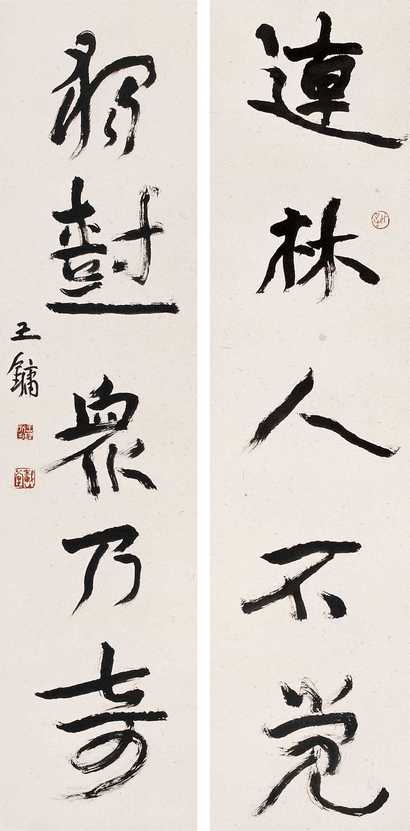 連林人不覺
獨樹衆乃奇
王鏞